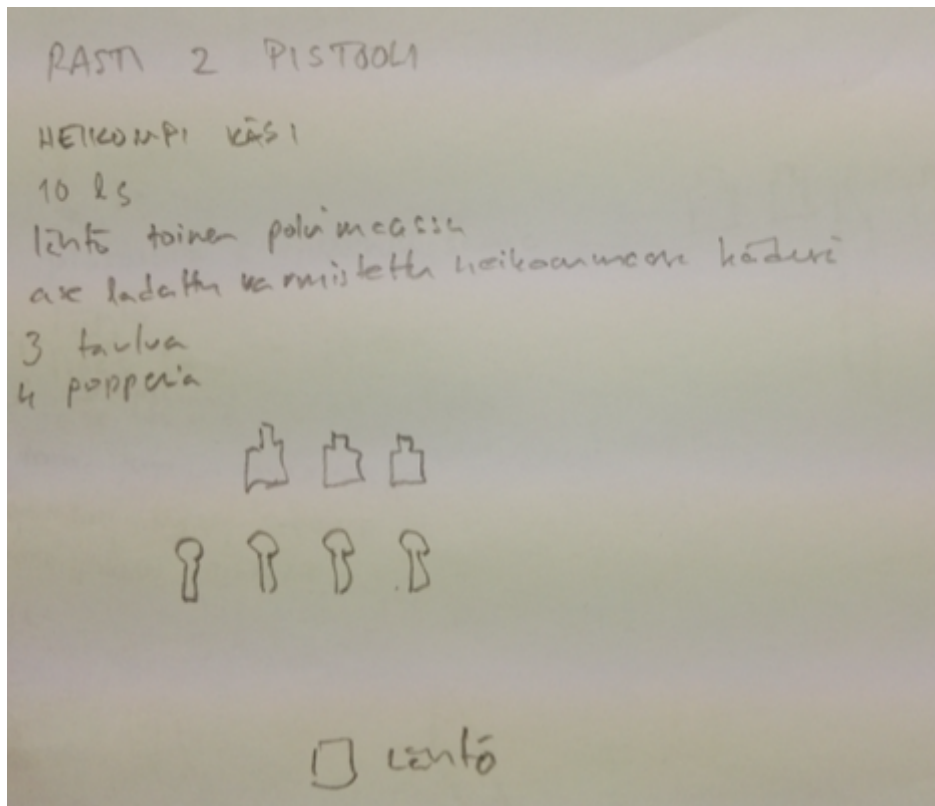 RASTI 2 PISTOOLI
HEIKOMPI KÄSI
10 ls
lähtö toinen polvi maassa
ase ladattu varmistettu heikommassa kädessä
3 taulua
4 popperia
Lähtö